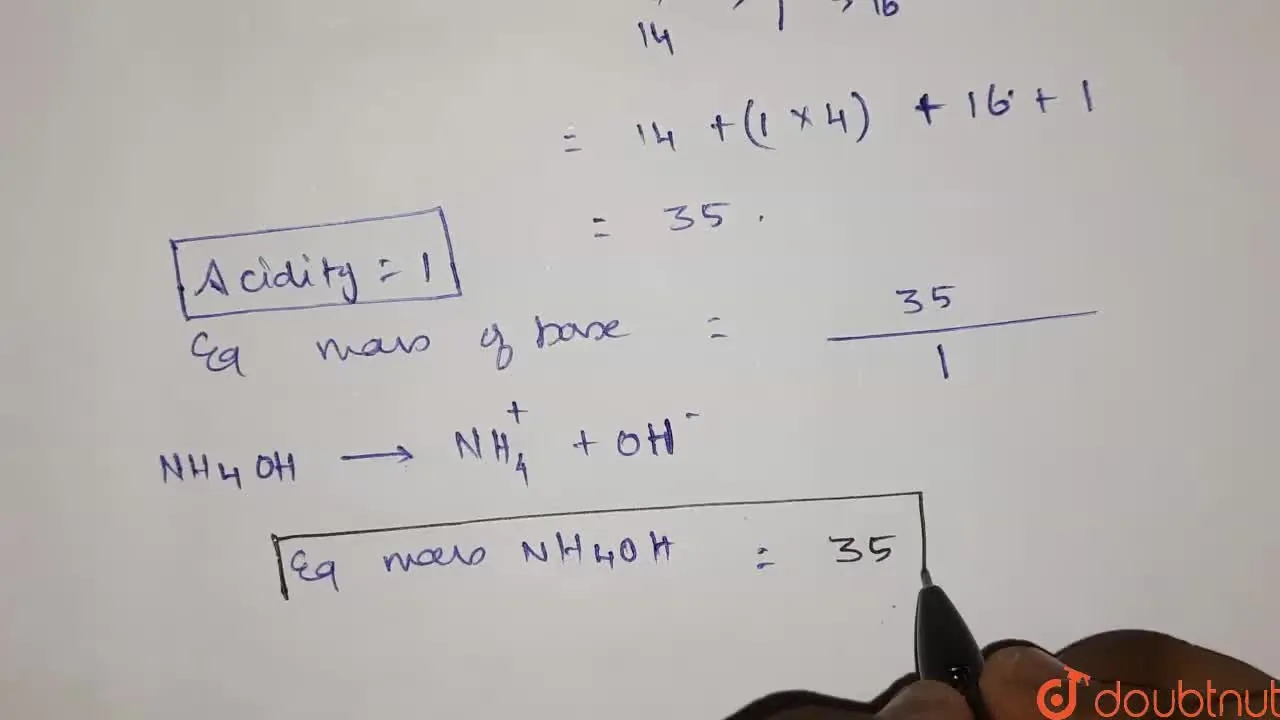 14 1 → 16
= 14 + (1 × 4) + 16 + 1
= 35.
Acidity = 1
Eq mass of base = 35/1
NH4OH → NH4+ + OH-
Eq mass NH4OH = 35
doubtnut